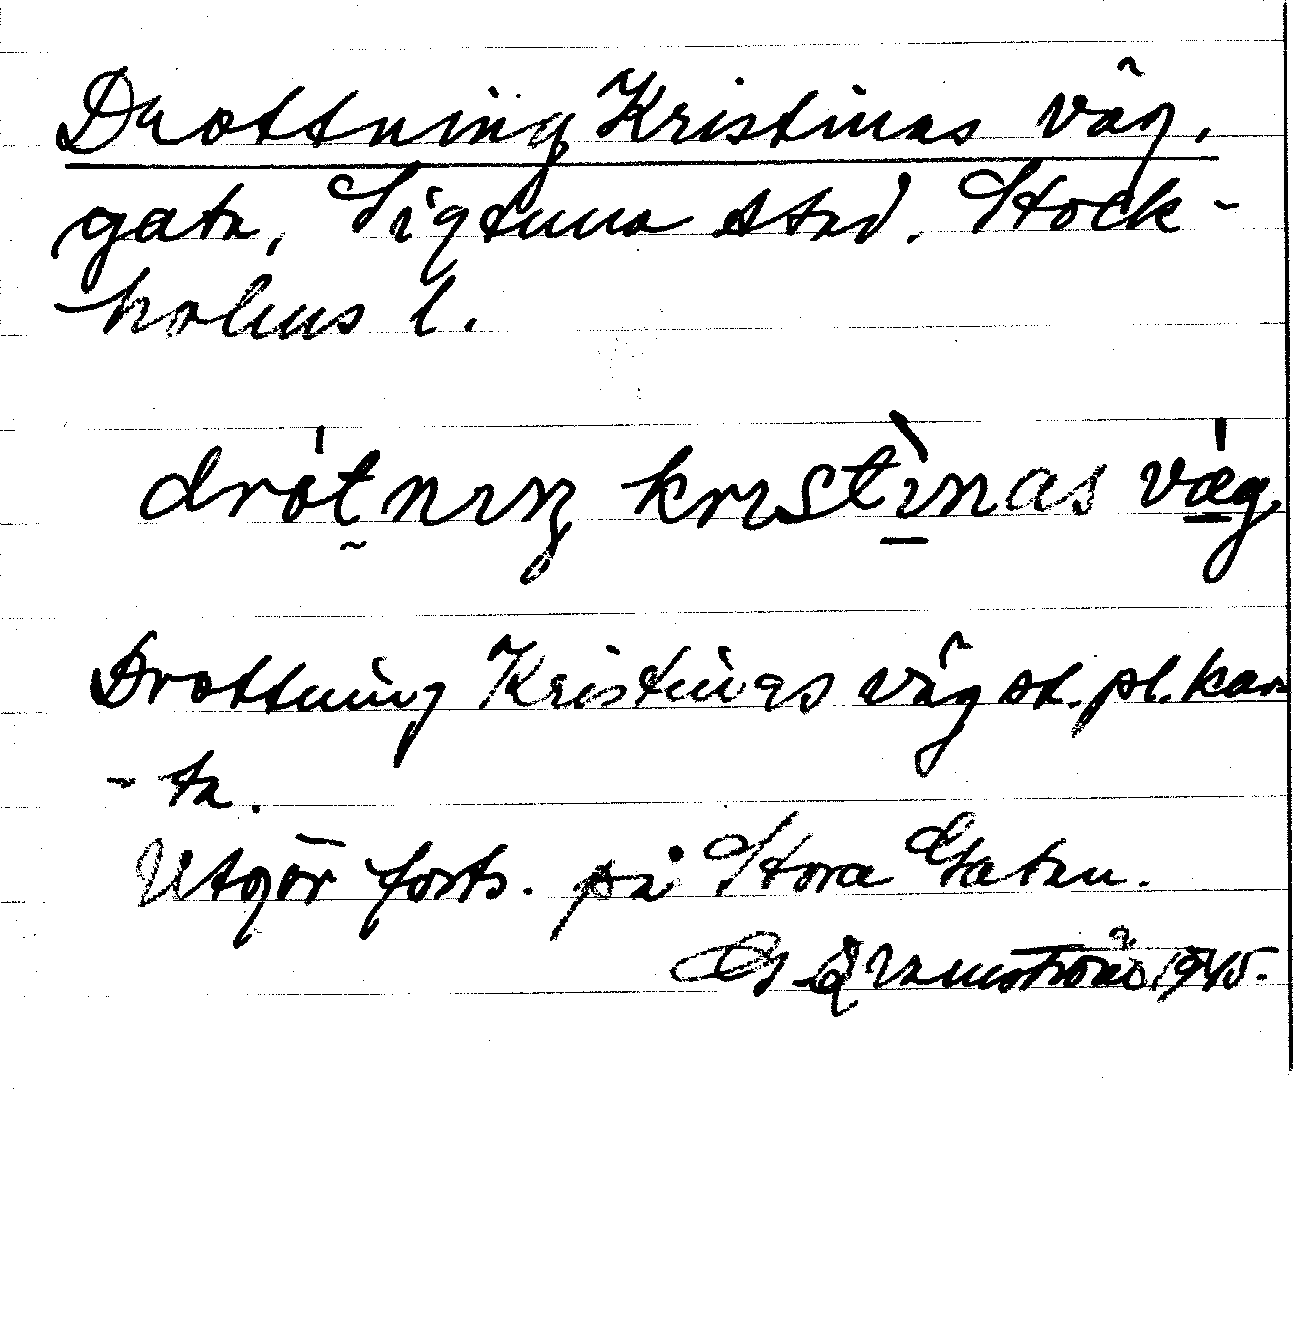 Drottning Kristinas väg,
gata, Sigtuna stad. Stock-
-holms l.
drótnıŋ krıstìnas væ̀g,
Drottning Kristinas väg st. pl. kar-
- ta.
Utgör forts. på Stora Gatan.
1945.